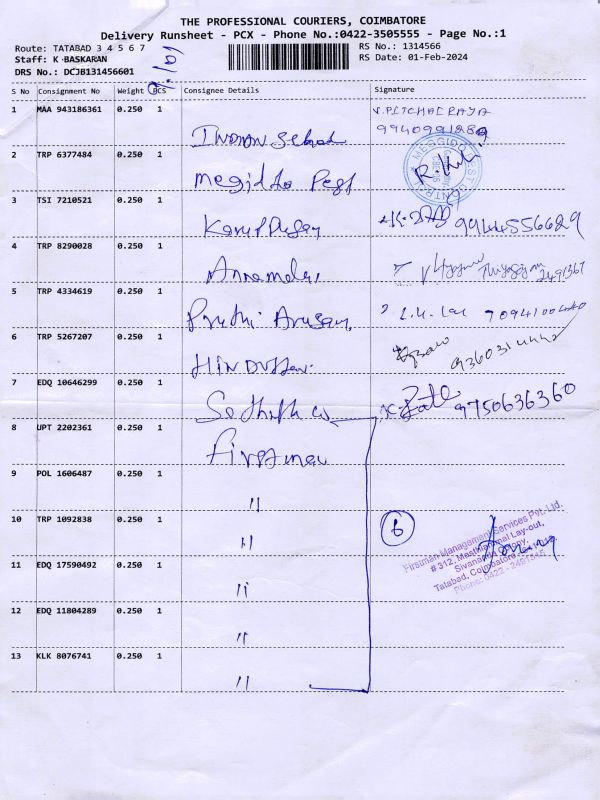 THE PROFESSIONAL COURIERS, COIMBATORE
Delivery Runsheet - PCX - Phone No.:0422-3505555 - Page No.:1
Route: TATABAD 3 4 5 6 7
RS No.: 1314566
Staff: K BASKARAN
RS Date: 01-Feb-2024
DRS No.: DCJB131456601
S No Consignment No Weight PCS Consignee Details Signature
1 MAA 943186361 0.250 1
V.PITCHAI RAJA
9940991289
2 TRP 6377484 0.250 1
Megiddo Pest
MEGIDDO PEST CONTROL
3 TSI 7210521 0.250 1
9944556629
4 TRP 8290028 0.250 1
Annamalai
2491367
5 TRP 4334619 0.250 1
7094100440
6 TRP 5267207 0.250 1
7 EDQ 10646299 0.250 1
9750636360
8 UPT 2202361 0.250 1
Firstman
9 POL 1606487 0.250 1
"
10 TRP 1092838 0.250 1
"
6
Firstman Management Services Pvt. Ltd.
# 312, Lay-out,
Tatabad, Coimbatore
Phone: 0422 - 2491545
11 EDQ 17590492 0.250 1
"
12 EDQ 11804289 0.250 1
"
13 KLK 8076741 0.250 1
"